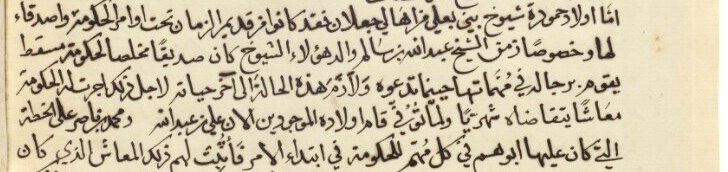 امّا اولاد حمودة شيوخ بني بعلي فراهالي جعلان نقد كانوا فر قديم الزمان تحت اوامر الحكومة واصدقاء
لها وخصوصًا زمن الشيخ عبدالله بن سالم والد هؤلاء الشيوخ كان صديقًا مخلصًا لحكومة مسقط
يقوم برجاله في مهماتها حينما تدعوه ولازم هذه الحالة الى آخر حياته لاجل ذلك اجرت له الحكومة
معاشًا يتقاضاه شهريًا ولما توفي قام اولاده الموجودين الان علي بن عبدالله ومحمد بن ناصر على الخطة
التي كان عليها ابوهم في كل مهم للحكومة في ابتداء الامر فأثبتت لهم ذلك المعاش الذي كان